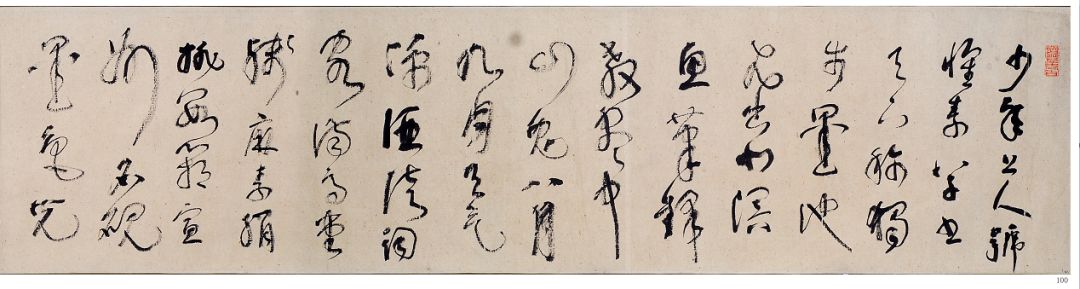 少年上人號
懷素草書
天下稱獨
步墨池
飛出北溟
魚筆鋒
殺盡中
山兔八月
九月天氣
涼酒徒詞
客滿高堂
牋麻素絹
排數廂宣
州石硯
墨色光
100